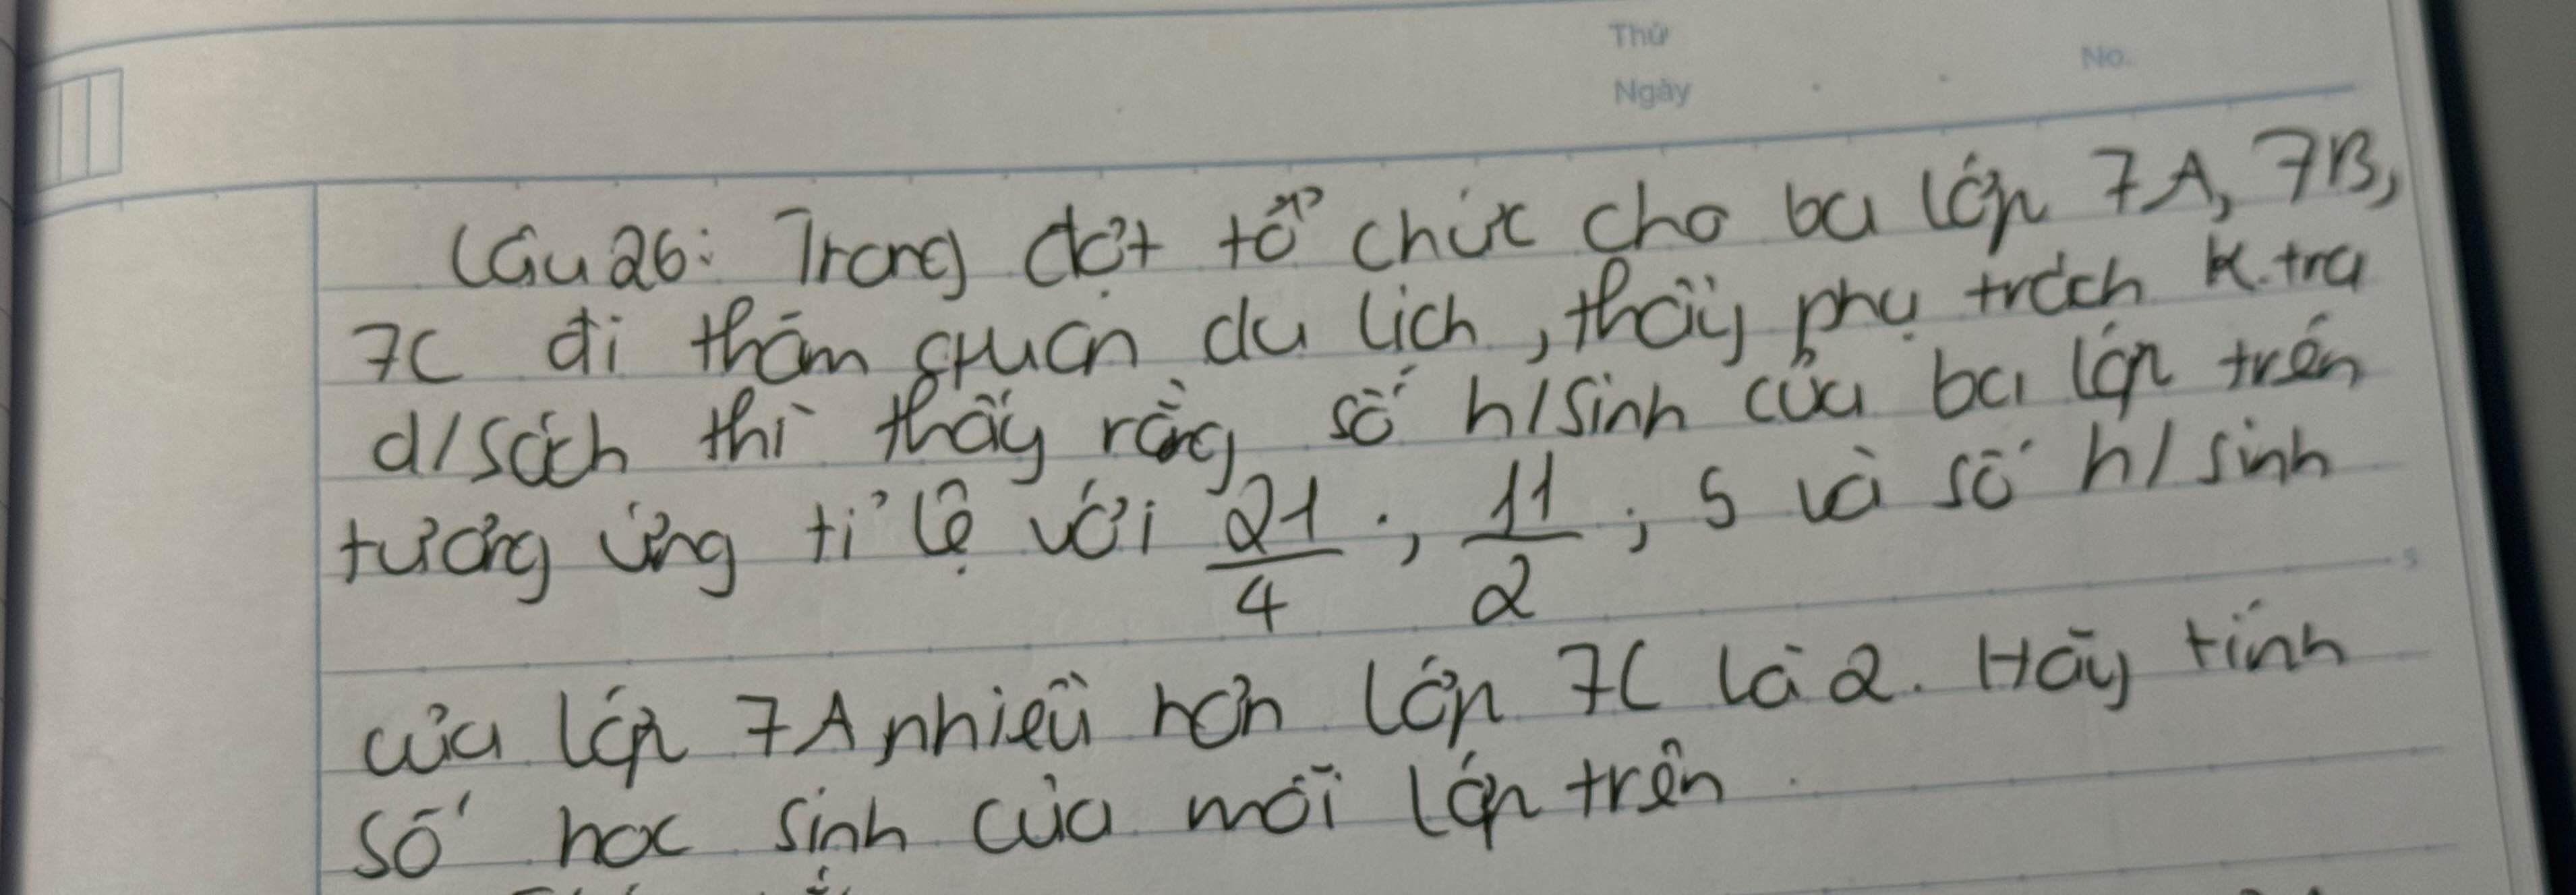 Thứ
No.
Ngày
Câu 26: Trong đợt tổ chức cho ba lớp 7A, 7B,
7C đi thăm quan du lịch, thầy phụ trách k.tra
d/sách thì thấy rằng số h/sinh của ba lớp trên
tương ứng tỉ lệ với 21/4 ; 11/2 ; 5 và số h/sinh
của lớp 7A nhiều hơn lớp 7C là 2. Hãy tính
số học sinh của mỗi lớp trên.